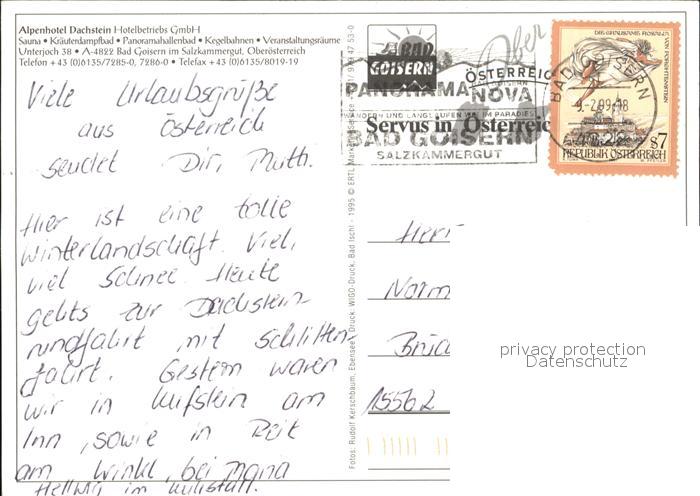 Alpenhotel Dachstein Hotelbetriebs GmbH
Sauna • Kräuterdampfbad • Panoramahallenbad • Kegelbahnen • Veranstaltungsräume
Unterjoch 38 • A-4822 Bad Goisern im Salzkammergut, Oberösterreich
Telefon +43 (0)6135/7285-0, 7286-0 • Telefax +43 (0)6135/8019-19
Viele Urlaubsgrüße
aus Österreich
sendet Dir, Mutti.
Hier ist eine tolle
Winterlandschaft. Viel,
viel Schnee. Heute
gehts zur Dachstein-
rundfahrt mit Schlitten-
fahrt. Gestern waren
wir in Kufstein am
Inn, sowie in Reit
am Winkl, bei Maria
Hellwig im Kuhstall.
Fotos: Rudolf Kerschbaum, Ebensee, Druck: WIGO-Druck, Bad Ischl - 1995 © ERTL Marketing Service
BAD
GOISERN
ÖSTERREICH
PANORAMA NOVA
BAD GOISERN
WANDERN UND LANGLAUFEN WIE IM PARADIES
Servus in Österreich
BAD GOISERN
SALZKAMMERGUT
BAD GOISERN
9.-2.99-18
4822
DIE GRAUSAME ROSALIA
VON FORCHTENSTEIN
S7
REPUBLIK ÖSTERREICH
Herr
Norm
Brüc
15562
privacy protection
Datenschutz